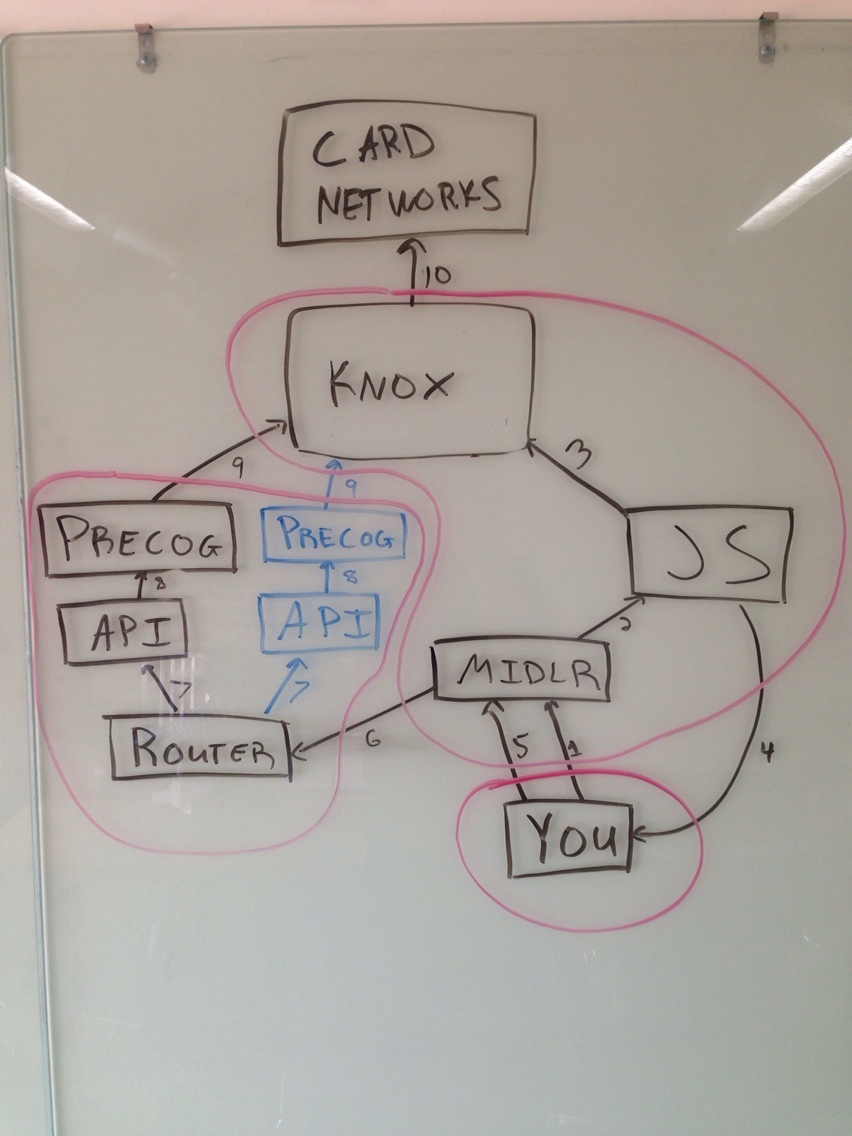 CARD
NETWORKS
10
KNOX
3
9
9
PRECOG
PRECOG
JS
8
8
API
API
2
MIDLR
7
7
ROUTER
6
5
1
4
YOU